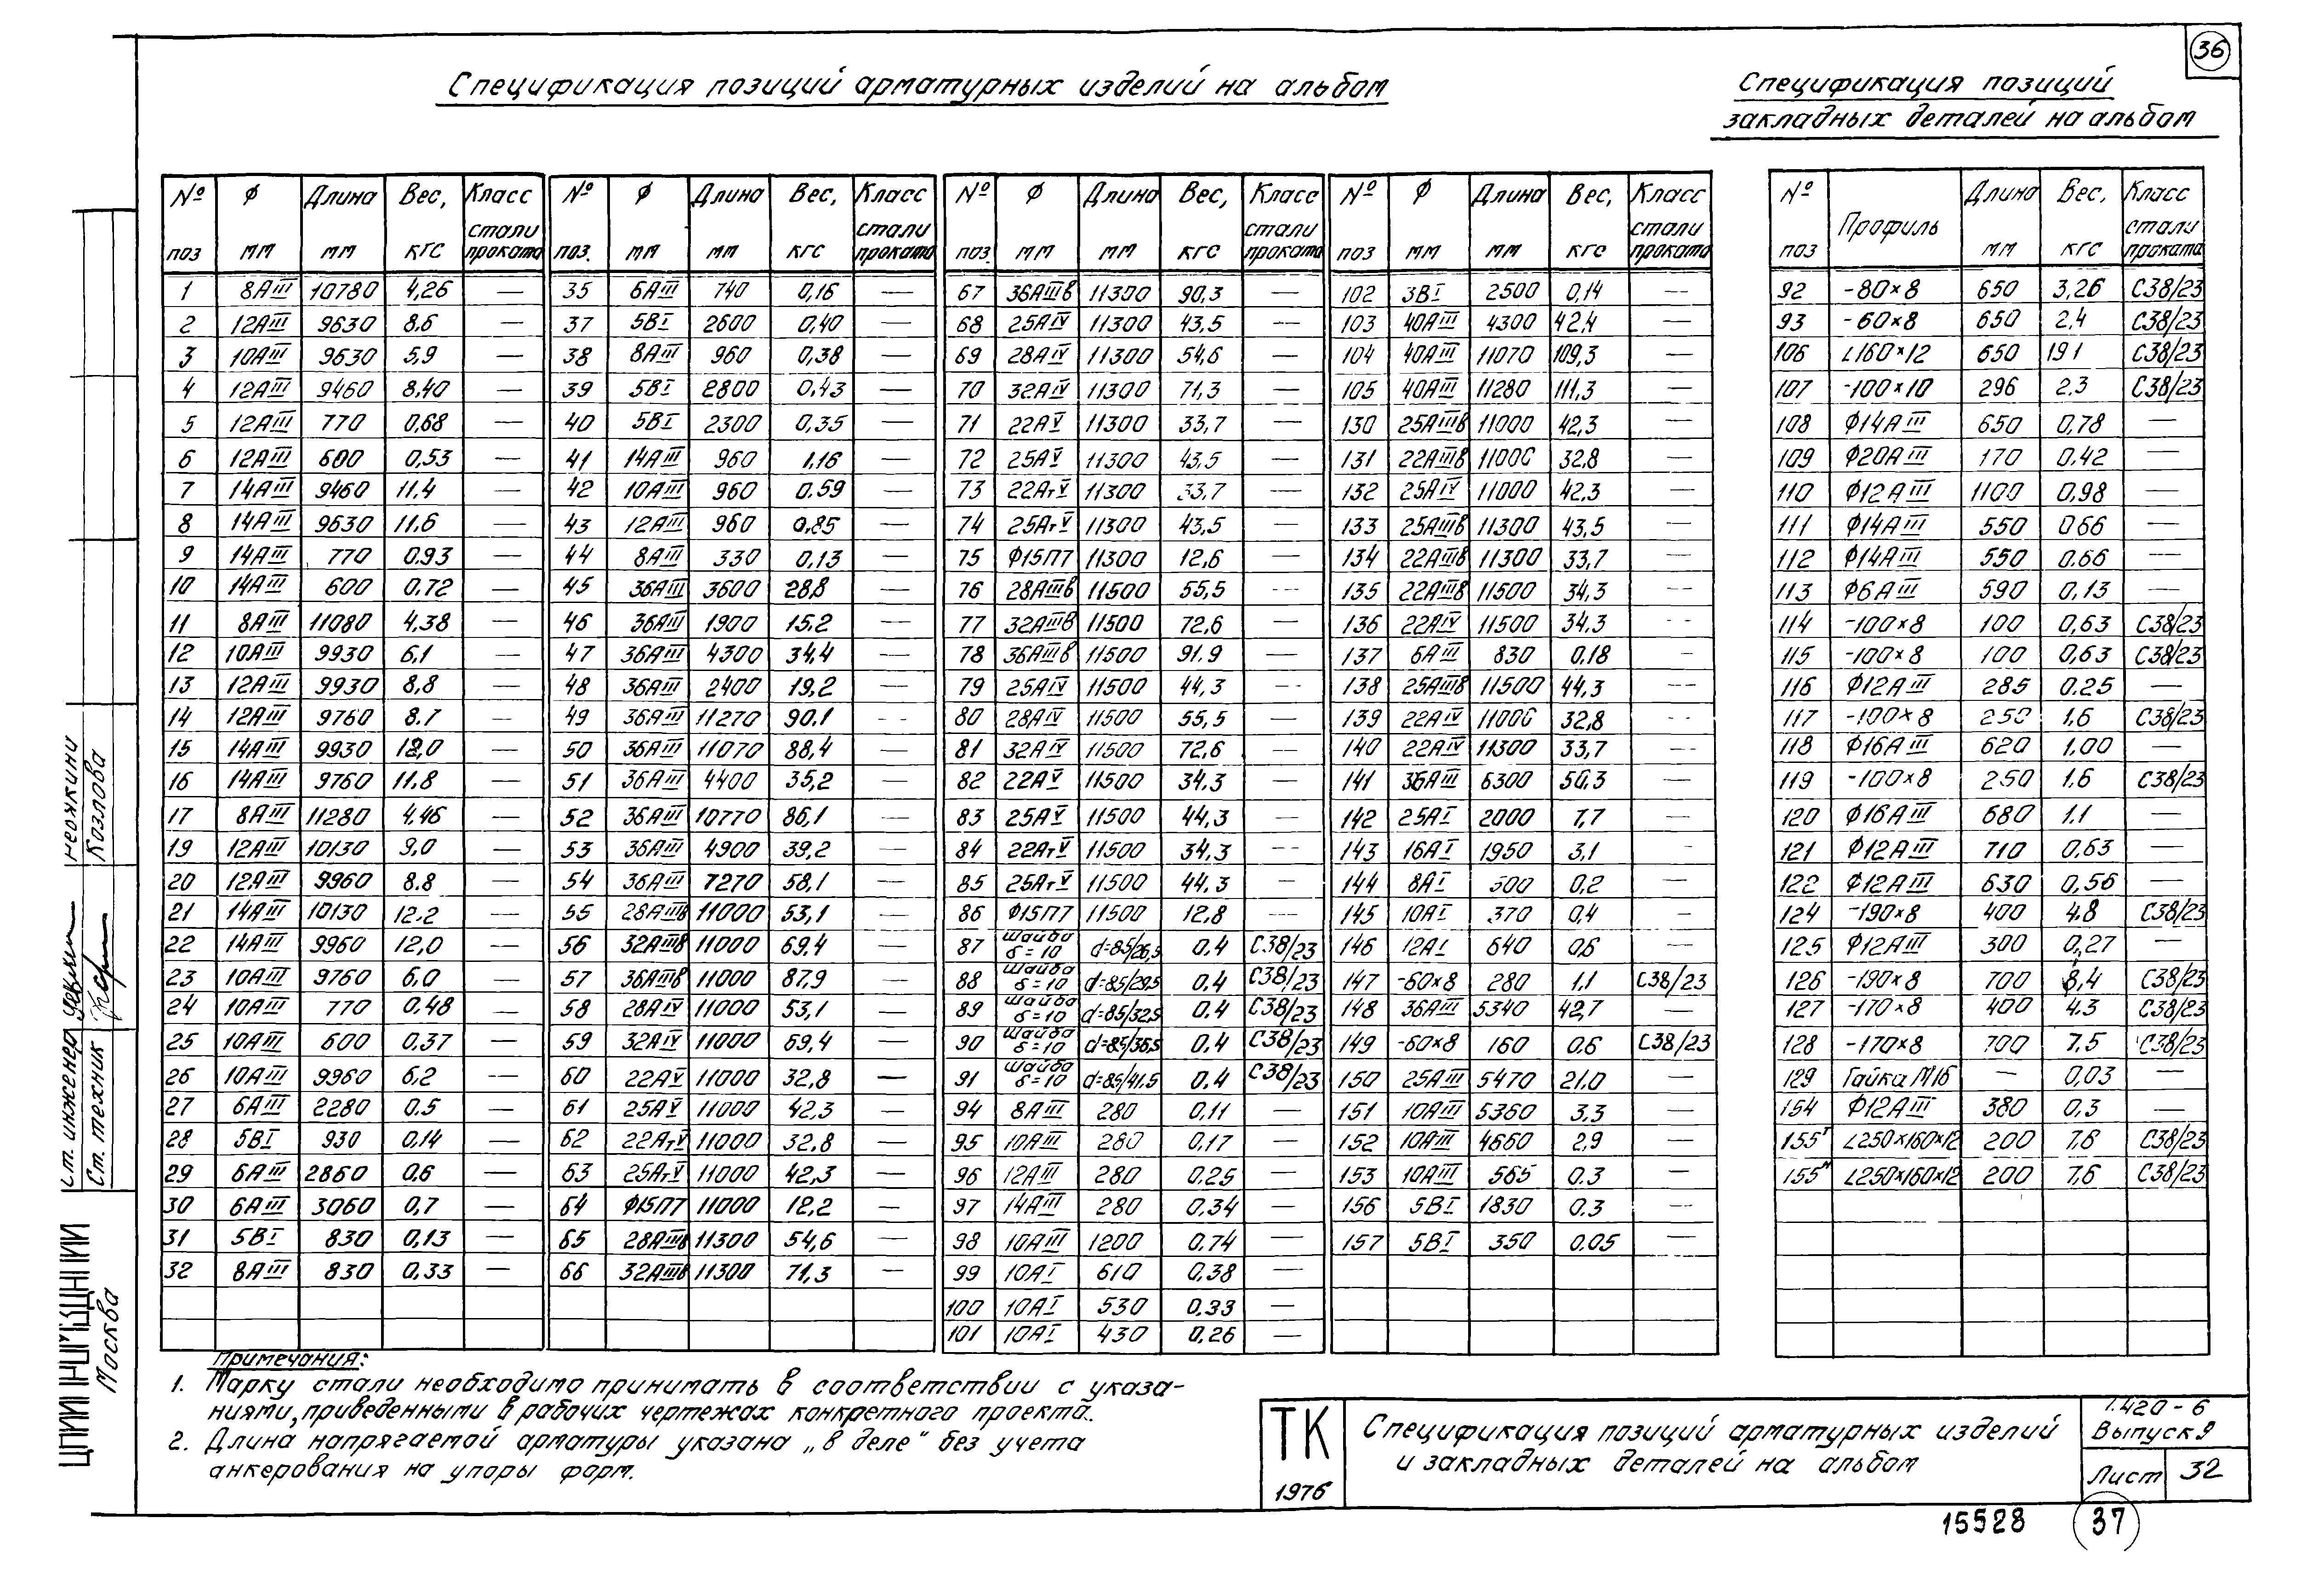 36
Спецификация позиций арматурных изделий на альбом
Спецификация позиций
закладных деталей на альбом
№ поз | Ф мм | Длина мм | Вес, кгс | Класс стали проката
1 | 8АIII | 10780 | 4,26 | —
2 | 12АIII | 9630 | 8.6 | —
3 | 10АIII | 9630 | 5,9 | —
4 | 12АIII | 9460 | 8,40 | —
5 | 12АIII | 770 | 0,68 | —
6 | 12АIII | 600 | 0,53 | —
7 | 14АIII | 9460 | 11.4 | —
8 | 14АIII | 9630 | 11.6 | —
9 | 14АIII | 770 | 0.93 | —
10 | 14АIII | 600 | 0.72 | —
11 | 8АIII | 11080 | 4,38 | —
12 | 10АIII | 9930 | 6,1 | —
13 | 12АIII | 9930 | 8,8 | —
14 | 12АIII | 9760 | 8.7 | —
15 | 14АIII | 9930 | 12,0 | —
16 | 14АIII | 9760 | 11.8 | —
17 | 8АIII | 11280 | 4.46 | —
19 | 12АIII | 10130 | 9,0 | —
20 | 12АIII | 9960 | 8.8 | —
21 | 14АIII | 10130 | 12.2 | —
22 | 14АIII | 9960 | 12,0 | —
23 | 10АIII | 9760 | 6,0 | —
24 | 10АIII | 770 | 0.48 | —
25 | 10АIII | 600 | 0.37 | —
26 | 10АIII | 9960 | 6,2 | —
27 | 6АIII | 2280 | 0.5 | —
28 | 5ВI | 930 | 0,14 | —
29 | 6АIII | 2860 | 0,6 | —
30 | 6АIII | 3060 | 0,7 | —
31 | 5ВI | 830 | 0,13 | —
32 | 8АIII | 830 | 0,33 | —
№ поз. | Ф мм | Длина мм | Вес, кгс | Класс стали проката
35 | 6АIII | 740 | 0,16 | —
37 | 5ВI | 2600 | 0,40 | —
38 | 8АIII | 960 | 0,38 | —
39 | 5ВI | 2800 | 0,43 | —
40 | 5ВI | 2300 | 0,35 | —
41 | 14АIII | 960 | 1,16 | —
42 | 10АIII | 960 | 0.59 | —
43 | 12АIII | 960 | 0,85 | —
44 | 8АIII | 330 | 0,13 | —
45 | 36АIII | 3600 | 28,8 | —
46 | 36АIII | 1900 | 15.2 | —
47 | 36АIII | 4300 | 34,4 | —
48 | 36АIII | 2400 | 19,2 | —
49 | 36АIII | 11270 | 90.1 | —
50 | 36АIII | 11070 | 88,4 | —
51 | 36АIII | 4400 | 35,2 | —
52 | 36АIII | 10770 | 86,1 | —
53 | 36АIII | 4900 | 39,2 | —
54 | 36АIII | 7270 | 58,1 | —
55 | 28АIIIв | 11000 | 53,1 | —
56 | 32АIIIв | 11000 | 69.4 | —
57 | 36АIIIв | 11000 | 87,9 | —
58 | 28АIV | 11000 | 53,1 | —
59 | 32АIV | 11000 | 69,4 | —
60 | 22АV | 11000 | 32,8 | —
61 | 25АV | 11000 | 42,3 | —
62 | 22АтV | 11000 | 32,8 | —
63 | 25АтV | 11000 | 42,3 | —
64 | Ф15П7 | 11000 | 12,2 | —
65 | 28АIIIв | 11300 | 54,6 | —
66 | 32АIIIв | 11300 | 71,3 | —
№ поз. | Ф мм | Длина мм | Вес, кгс | Класс стали проката
67 | 36АIIIв | 11300 | 90,3 | —
68 | 25АIV | 11300 | 43,5 | —
69 | 28АIV | 11300 | 54,6 | —
70 | 32АIV | 11300 | 71,3 | —
71 | 22АV | 11300 | 33,7 | —
72 | 25АV | 11300 | 43,5 | —
73 | 22АтV | 11300 | 33,7 | —
74 | 25АтV | 11300 | 43,5 | —
75 | Ф15П7 | 11300 | 12,6 | —
76 | 28АIIIв | 11500 | 55,5 | —
77 | 32АIIIв | 11500 | 72,6 | —
78 | 36АIIIв | 11500 | 91.9 | —
79 | 25АIV | 11500 | 44,3 | —
80 | 28АIV | 11500 | 55,5 | —
81 | 32АIV | 11500 | 72,6 | —
82 | 22АV | 11500 | 34,3 | —
83 | 25АV | 11500 | 44,3 | —
84 | 22АтV | 11500 | 34,3 | —
85 | 25АтV | 11500 | 44,3 | —
86 | Ф15П7 | 11500 | 12,8 | —
87 | Шайба δ=10 | d=85/26,5 | 0,4 | С38/23
88 | Шайба δ=10 | d=85/29,5 | 0,4 | С38/23
89 | Шайба δ=10 | d=85/32,5 | 0.4 | С38/23
90 | Шайба δ=10 | d=85/36,5 | 0,4 | С38/23
91 | Шайба δ=10 | d=85/41,5 | 0,4 | С38/23
94 | 8АIII | 280 | 0,11 | —
95 | 10АIII | 280 | 0,17 | —
96 | 12АIII | 280 | 0.25 | —
97 | 14АIII | 280 | 0.34 | —
98 | 10АIII | 1200 | 0,74 | —
99 | 10АI | 610 | 0,38 | —
100 | 10АI | 530 | 0.33 | —
101 | 10АI | 430 | 0,26 | —
№ поз | Ф мм | Длина мм | Вес, кгс | Класс стали проката
102 | 3ВI | 2500 | 0,14 | —
103 | 40АIII | 4300 | 42,4 | —
104 | 40АIII | 11070 | 109,3 | —
105 | 40АIII | 11280 | 111,3 | —
130 | 25АIIIв | 11000 | 42,3 | —
131 | 22АIIIв | 11000 | 32,8 | —
132 | 25АIV | 11000 | 42.3 | —
133 | 25АIIIв | 11300 | 43,5 | —
134 | 22АIIIв | 11300 | 33,7 | —
135 | 22АIIIв | 11500 | 34,3 | —
136 | 22АIV | 11500 | 34,3 | —
137 | 6АIII | 830 | 0,18 | —
138 | 25АIIIв | 11500 | 44,3 | —
139 | 22АIV | 11000 | 32,8 | —
140 | 22АIV | 11300 | 33,7 | —
141 | 36АIII | 6300 | 50,3 | —
142 | 25АI | 2000 | 7,7 | —
143 | 16АI | 1950 | 3,1 | —
144 | 8АI | 500 | 0,2 | —
145 | 10АI | 370 | 0,4 | —
146 | 12АI | 640 | 0,6 | —
147 | -60×8 | 280 | 1,1 | С38/23
148 | 36АIII | 5340 | 42,7 | —
149 | -60×8 | 160 | 0,6 | С38/23
150 | 25АIII | 5470 | 21.0 | —
151 | 10АIII | 5360 | 3,3 | —
152 | 10АIII | 4660 | 2,9 | —
153 | 10АIII | 565 | 0.3 | —
156 | 5ВI | 1830 | 0.3 | —
157 | 5ВI | 350 | 0.05 | —
№ поз | Профиль | Длина мм | Вес, кгс | Класс стали проката
92 | -80×8 | 650 | 3,26 | С38/23
93 | -60×8 | 650 | 2,4 | С38/23
106 | L160×12 | 650 | 19 1 | С38/23
107 | -100×10 | 296 | 2.3 | С38/23
108 | Ф14АIII | 650 | 0,78 | —
109 | Ф20АIII | 170 | 0.42 | —
110 | Ф12АIII | 1100 | 0,98 | —
111 | Ф14АIII | 550 | 0 66 | —
112 | Ф14АIII | 550 | 0.66 | —
113 | Ф6АIII | 590 | 0,13 | —
114 | -100×8 | 100 | 0,63 | С38/23
115 | -100×8 | 100 | 0,63 | С38/23
116 | Ф12АIII | 285 | 0.25 | —
117 | -100×8 | 250 | 1.6 | С38/23
118 | Ф16АIII | 620 | 1.00 | —
119 | -100×8 | 250 | 1.6 | С38/23
120 | Ф16АIII | 680 | 1.1 | —
121 | Ф12АIII | 710 | 0,63 | —
122 | Ф12АIII | 630 | 0,56 | —
124 | -190×8 | 400 | 4.8 | С38/23
125 | Ф12АIII | 300 | 0,27 | —
126 | -190×8 | 700 | 8,4 | С38/23
127 | -170×8 | 400 | 4.3 | С38/23
128 | -170×8 | 700 | 7,5 | С38/23
129 | Гайка М16 | — | 0,03 | —
154 | Ф12АIII | 380 | 0,3 | —
155т | L250×160×12 | 200 | 7.6 | С38/23
155н | L250×160×12 | 200 | 7,6 | С38/23
Примечания:
1. Марку стали необходимо принимать в соответствии с указа-
ниями, приведенными в рабочих чертежах конкретного проекта.
2. Длина напрягаемой арматуры указана „в деле" без учета
анкерования на упоры форм.
ТК
1976
Спецификация позиций арматурных изделий
и закладных деталей на альбом
1.420-6
Выпуск 9
Лист 32
15528
37
Ст. инженер
Ст. техник Козлова
Москва